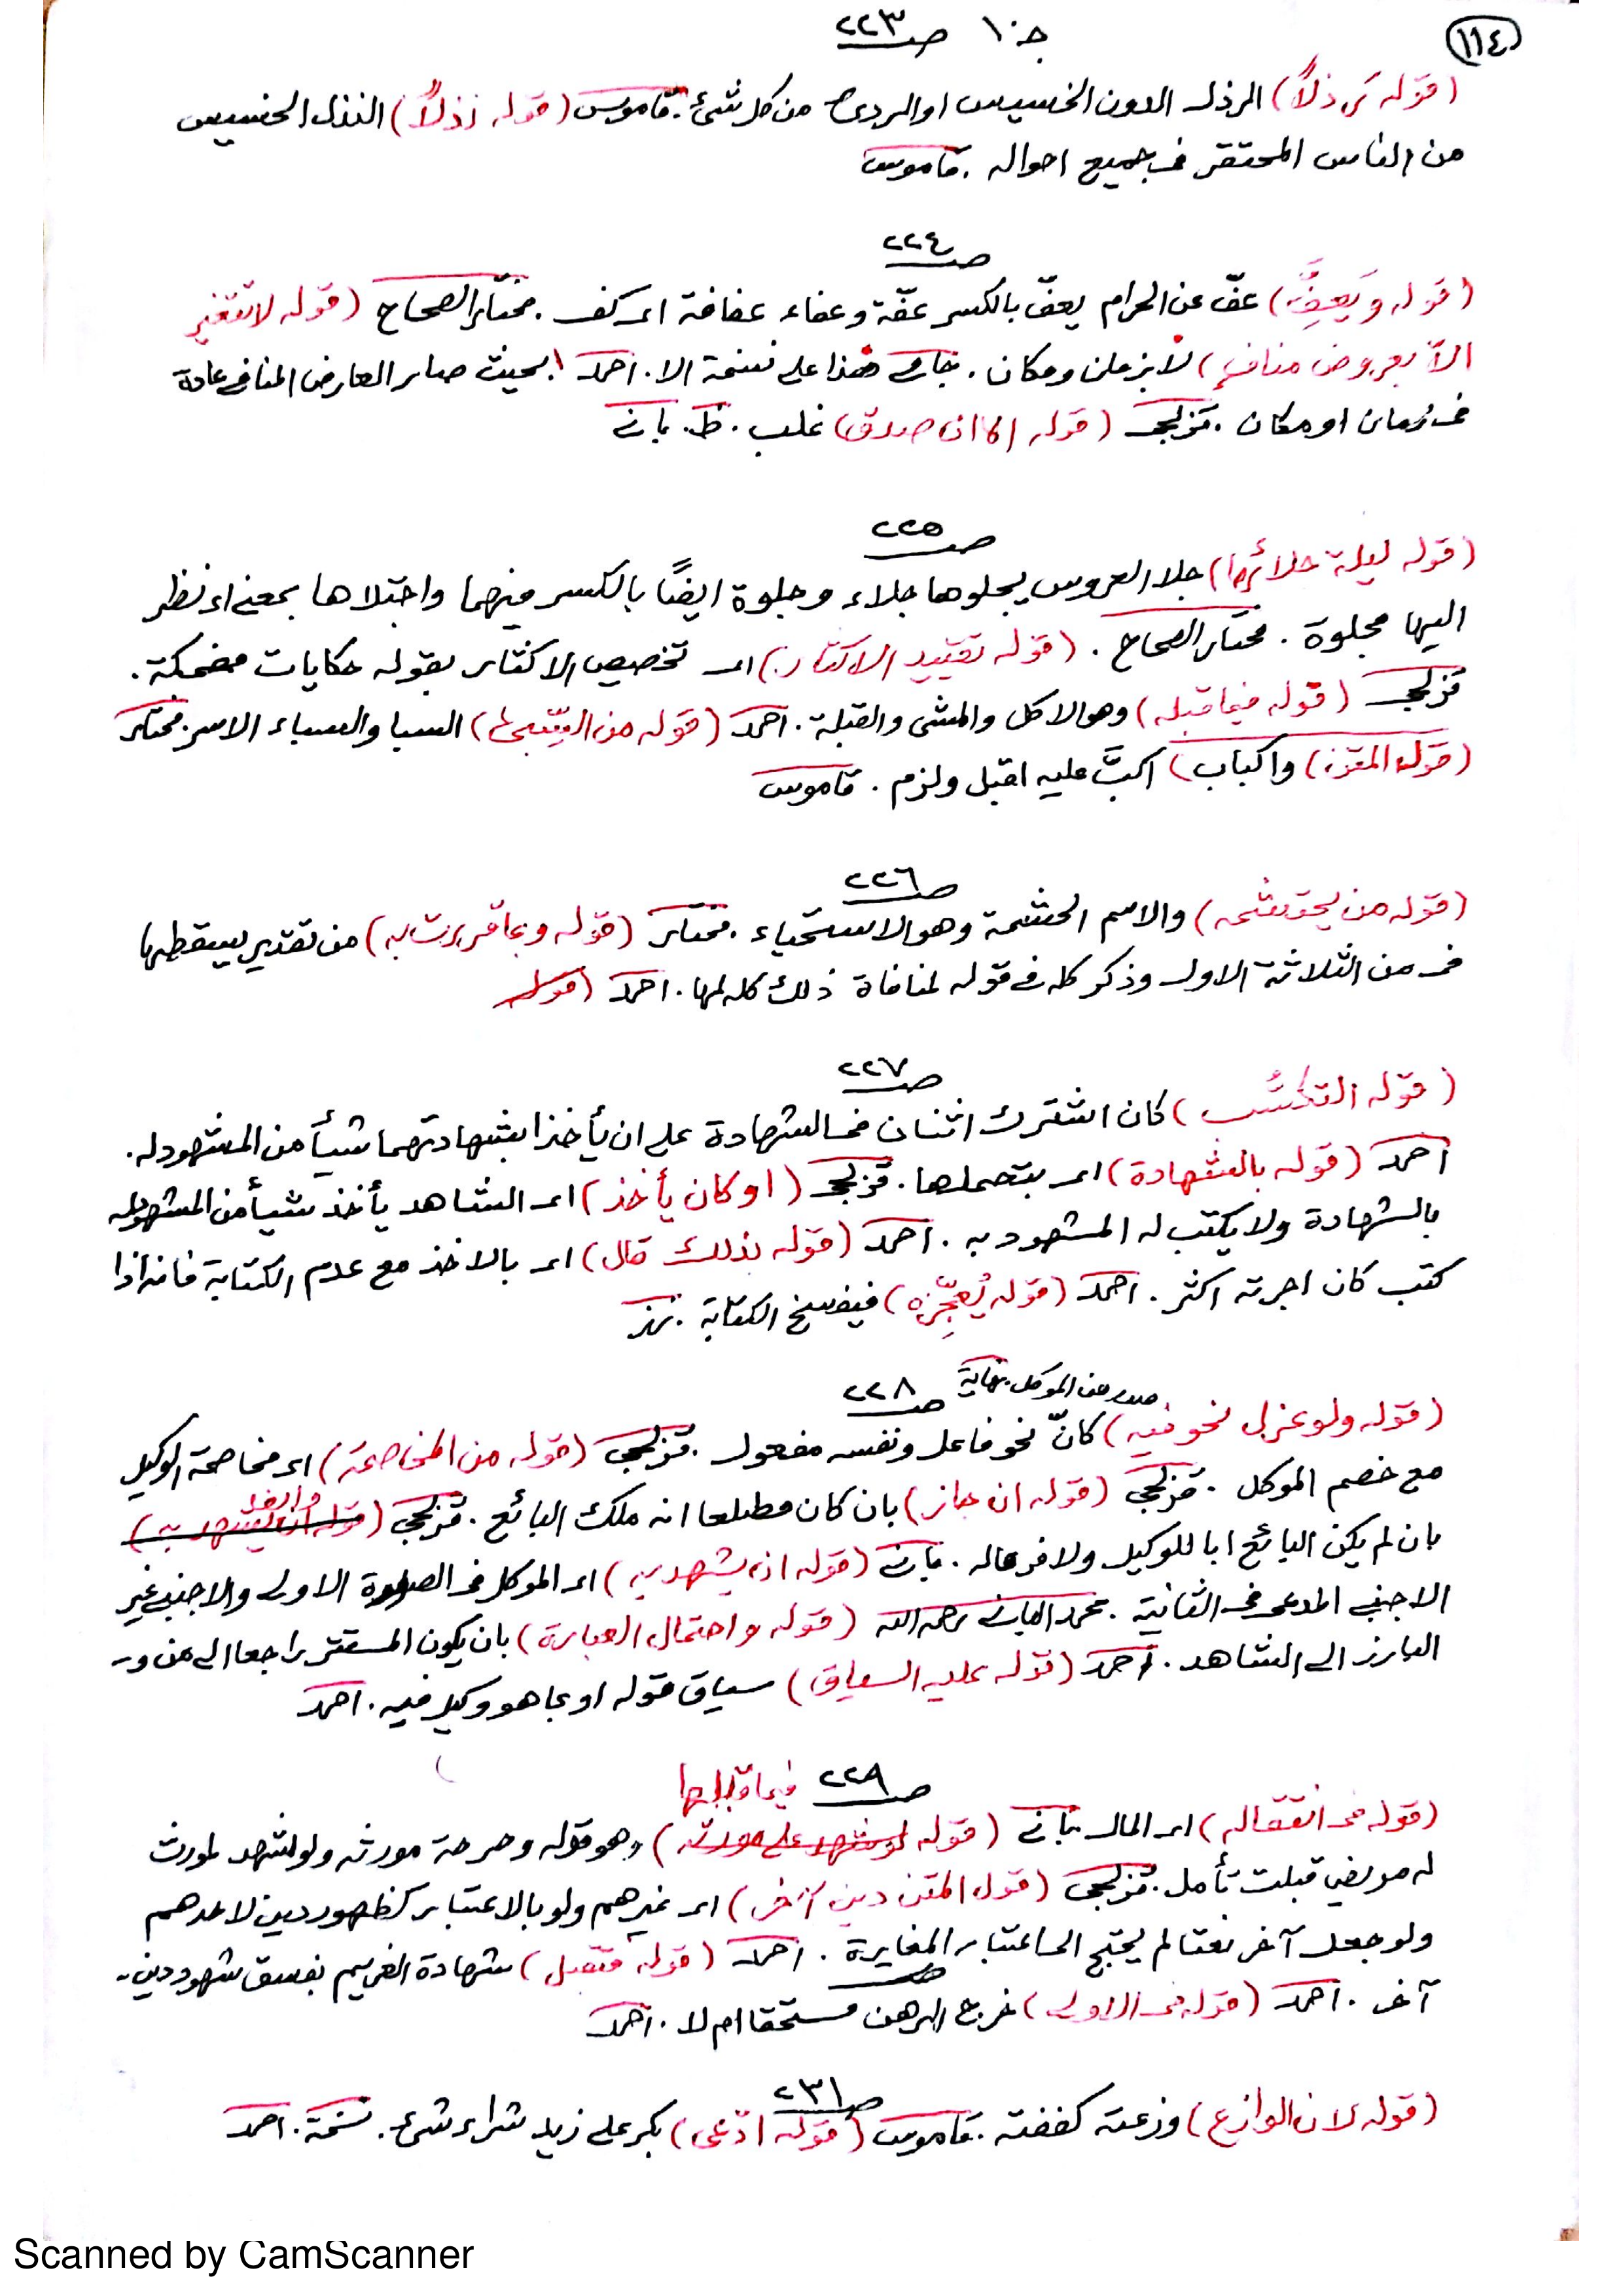 ١١٤
جـ ١٠ صـ ٢٢٣
(قوله رذلاً) الرذل الدون الخسيس او الردئ من كل شئ. قاموس (قوله نذلاً) النذل الخسيس
من الناس المحتقر فى جميع احواله . قاموس
صـ ٢٢٤
(قوله ويَعِفَّ) عفّ عن الحرام يعفّ بالكسر عفّة وعفا عفافة اى كف . مختار الصحاح (قوله لا تتغير
الاّ بعروض مناف) لا بزمان ومكان . بحيث صار العارض المنافى عادة
فى زمان او مكان . قزلجى (قوله صدق) غلب . ظ . بانى
صـ ٢٢٥
(قوله ليلة جلائها) جلا العروس يجلوها جلاء وجلوة ايضًا بالكسر فيهما واجتلاها بمعنى اى نظر
اليها مجلوة . مختار الصحاح . (قوله تقييد الاكثار) اى تخصيص الاكثار بقوله حكايات مضحكة .
قزلجى (قوله فيما قبله) وهو الاكل والمشى والقبلة . احمد (قوله من السبى) السبا والسباء الاسر . مختار
(قوله المتن) واكباب) اكبّ عليه اقبل ولزم . قاموس
صـ ٢٢٦
(قوله من يحتشمه) والاسم الحشمة وهو الاستحياء . مختار (قوله وبما قررت به) من تقدير يسقطها
فى من الثلاثة الاول وذكر كله فى قوله لمنافاة ذلك كله لها . احمد (قوله
صـ ٢٢٧
(قوله التكسُّب) كان اشترك اثنان فى الشهادة على ان يأخذا بشهادتهما شيأ من المشهود له .
احمد (قوله بالشهادة) اى بتحملها . قزلجى (او كان يأخذ) اى الشاهد يأخذ شيأ من المشهود له
بالشهادة ولا يكتب له المشهود به . احمد (قوله بذلك قال) اى بالاخذ مع عدم الكتابة فانه اذا
كتب كان اجرته اكثر . احمد (قوله يُعجِّزه) فيفسخ الكتابة .
صدر من الموكل . نهاية
صـ ٢٢٨
(قوله ولو عزل نحو فيه) كانّ نحو فاعل ونفسه مفعول . قزلجى (قوله من المخاصمة) اى مخاصمة الوكيل
مع خصم الموكل . قزلجى (قوله ان جاز) بان كان مطلعا انه ملك البائع . قزلجى (
بان لم يكن البائع ابا للوكيل ولا فرعا له . بانى (قوله ان يشهد به) اى الموكل فى الصورة الاولى والاجنبى غير
الاجنبى المدعى فى الثانية . محمد البانى رحمه الله (قوله واحتمال العبارة) بان يكون المستتر راجعا الى من و
البارز الى الشاهد . احمد (قوله عليه السياق) سياق قوله او بما هو وكيل فيه . احمد
صـ ٢٢٩
فيما قبلها
(قوله فى انتقاله) اى المال بانى (قوله لو شهد على مورثه) وهو قوله وصرحة مورثه ولو شهد لمورث
له مريض قبلت تأمل . قزلجى (قول المتن دين آخر) اى غيرهم ولو بالاعتبار كظهور دين لاحدهم
ولو جعل آخر نعتا لم يحتج الى اعتبار المغايرة . احمد (قوله فتقبل) شهادة الغريم بفسق شهود دين
آخر . احمد (قوله فى الاولى) خرج الرهن مستحقا ام لا . احمد
صـ ٢٣١
(قوله لان الوازع) وزعته كففته . قاموس (قوله ادّعى) بكر على زيد شراء شئ . نسخة . احمد
Scanned by CamScanner